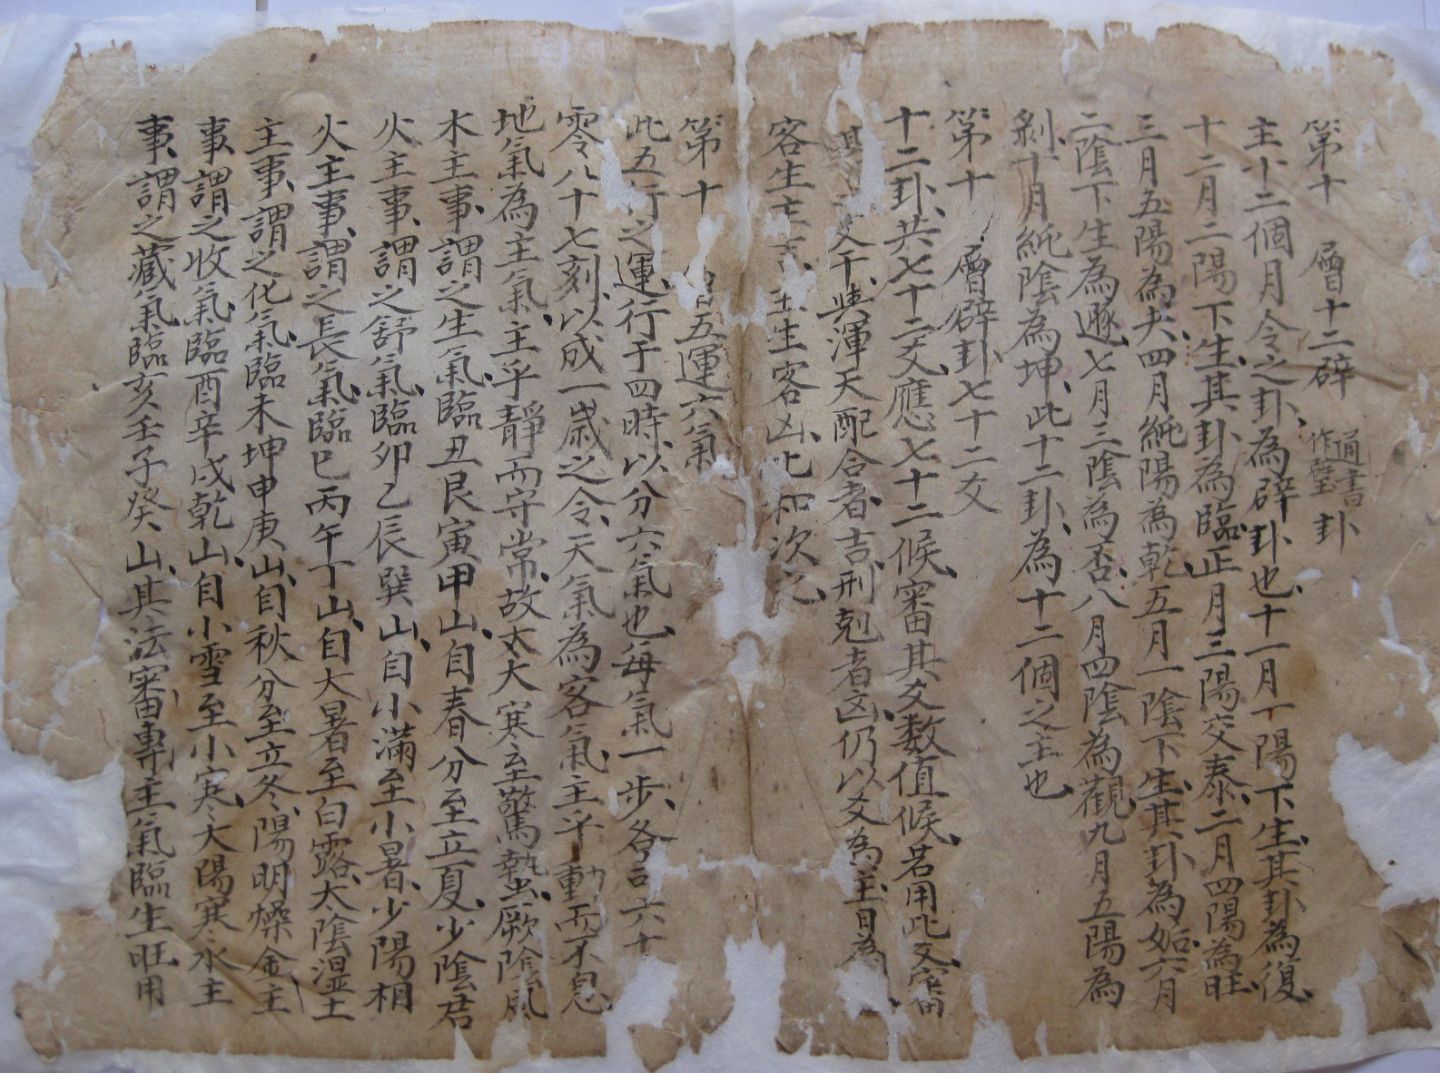 第十 層十二辟 通書作璧 卦
主十二個月令之卦、為辟卦也、十一月一陽下生、其卦為復
十二月二陽下生、其卦為臨、正月三陽交泰、二月四陽為旺
三月五陽為夬、四月純陽為乾、五月一陰下生、其卦為姤、六月
二陰下生為遯、七月三陰為否、八月四陰為觀、九月五陽為
剝、十月純陰為坤、此十二卦、為十二個之主也
第十 層辟卦七十二爻
十二卦、共七十二爻、應七十二候、審其爻數值候、若用此爻審
其 爻干、與渾天配合者吉、刑剋者凶、仍以爻為主、日為
客、生主吉、主生客凶、比和次之
第十 層五運六氣
此五行之運、行于四時、以分六氣也、每氣一步、各司六十
零八十七刻、以成一歲之令、天氣為客氣、主乎動而不息
地氣為主氣、主乎靜而守常、故太大寒至驚蟄、厥陰風
木主事、謂之生氣、臨丑艮寅甲山、自春分至立夏、少陰君
火主事、謂之舒氣、臨卯乙辰巽山、自小滿至小暑、少陽相
火主事、謂之長氣、臨巳丙午丁山、自大暑至白露、太陰濕土
主事、謂之化氣、臨未坤申庚山、自秋分至立冬、陽明燥金主
事、謂之收氣、臨酉辛戌乾山、自小雪至小寒、太陽寒水主
事、謂之藏氣、臨亥壬子癸山、其法審專主氣臨生旺用